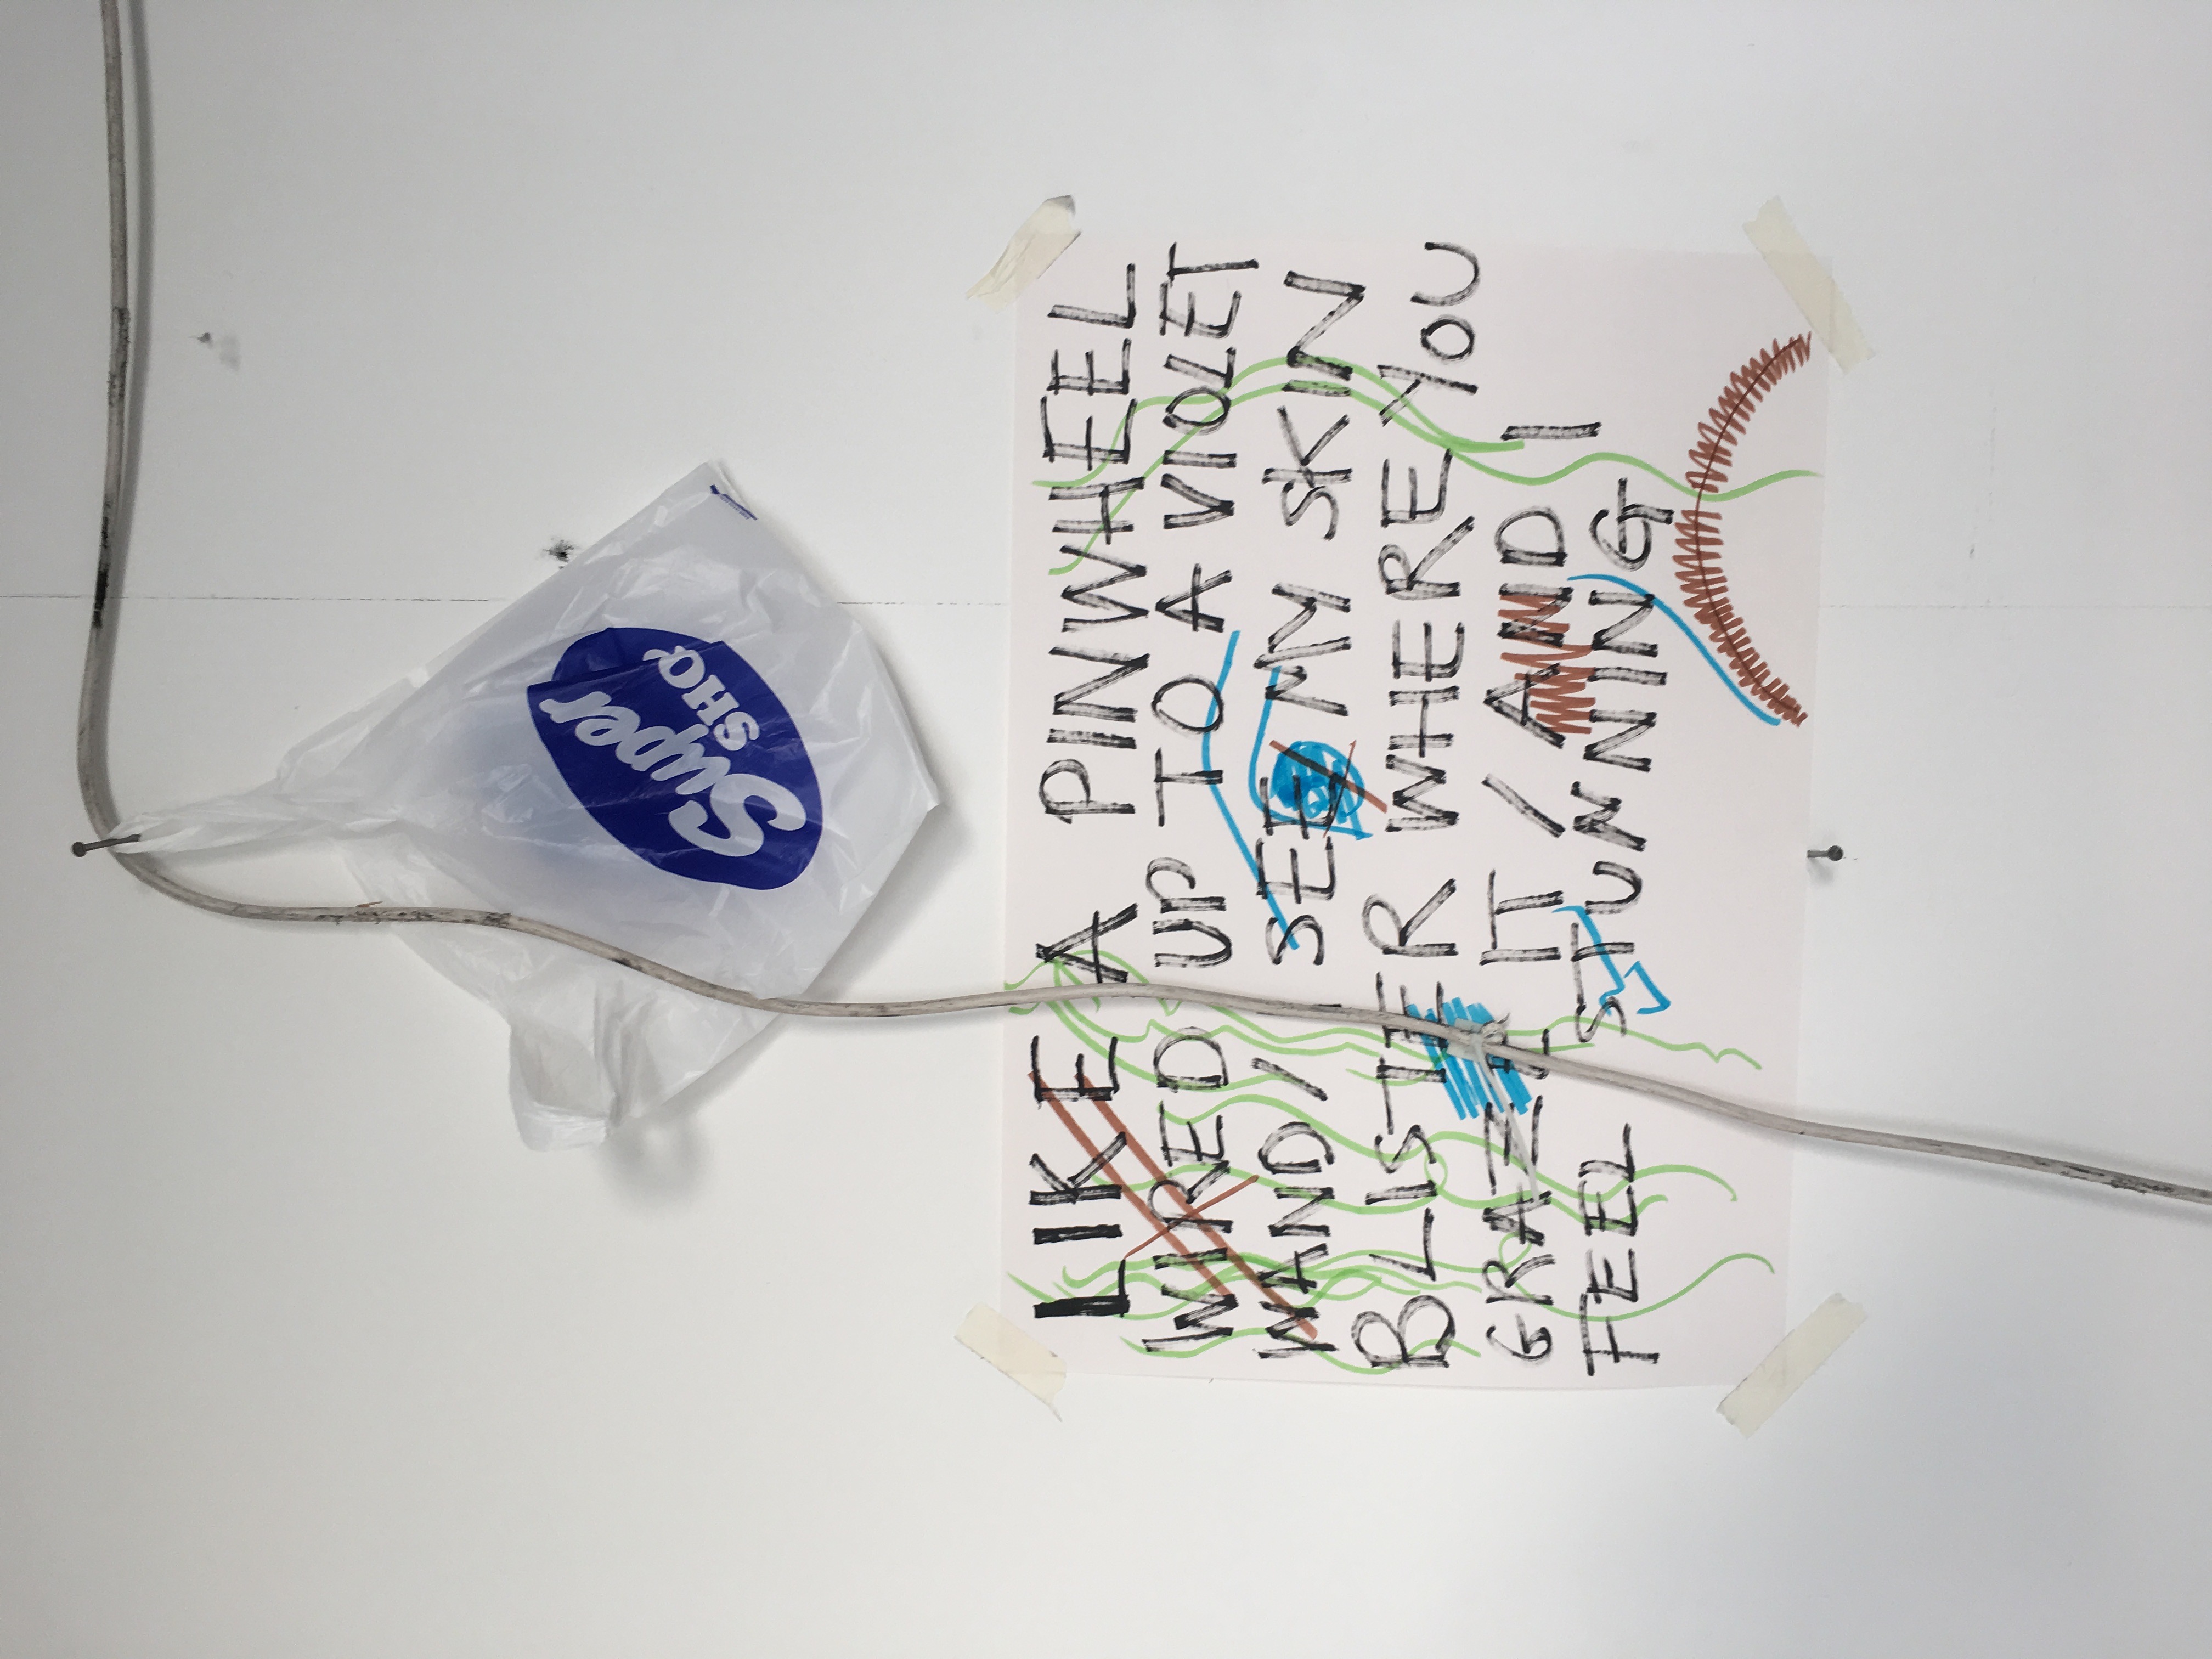 Super
SHO
LIKE A PINWHEEL
WIRED UP TO A VIOLET
WAND / I SEE / MY SKIN
BLISTER WHERE YOU
GRAZE IT / AND I
FEEL STUNNING